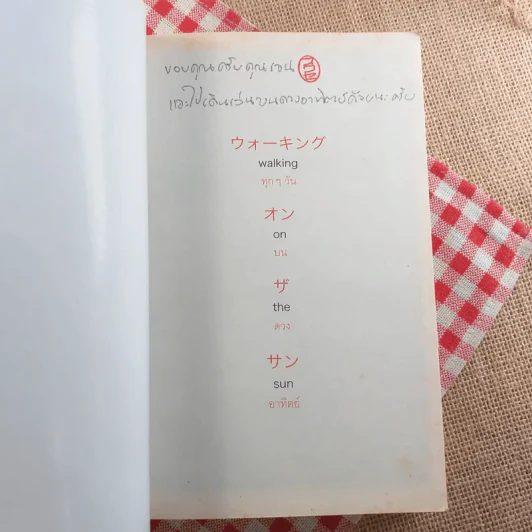 ขอบคุณครับคุณ
แวะไปเดินเล่นบนดวงอาทิตย์ด้วยนะครับ
ウォーキング
walking
ทุก ๆ วัน
オン
on
บน
ザ
the
ดวง
サン
sun
อาทิตย์